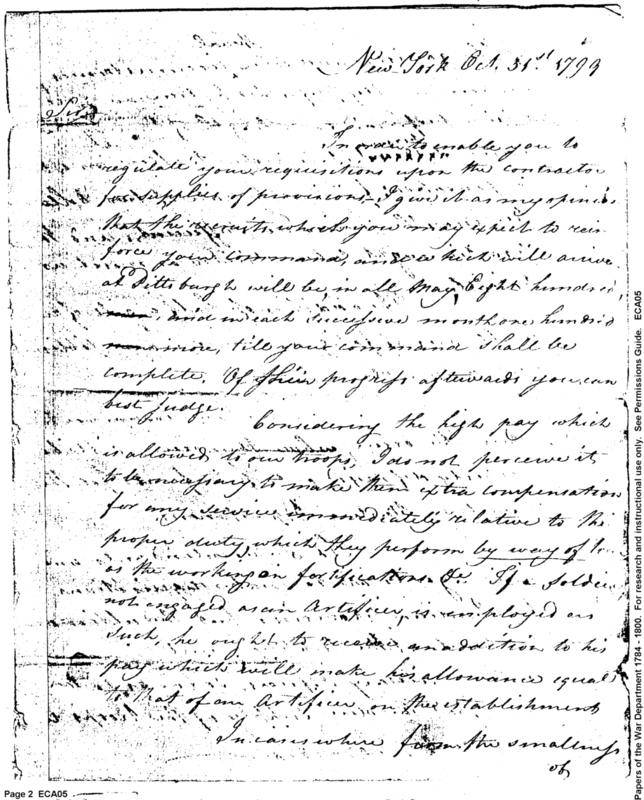 New York Oct. 31st. 1799
Sir
In order to enable you to
regulate your requisitions upon the contractor
for supplies of provisions I give it as my opinion
that the recruits which you may expect to rein
force your command, and which will arrive
at Pittsburgh will be, in all May, Eight hundred,
and in each successive month one hundred
more, till your command shall be
complete. Of their progress afterwards you can
best judge.
Considering the high pay which
is allowed to our troops, I do not perceive it
to be necessary to make them extra compensation
for any service immediately relative to the
proper duty which they perform by way of
as the working on fortifications &c. If a soldier
not engaged as an Artificer, is employed as
such, he ought to receive an addition to his
pay which will make his allowance equal
to that of an Artificer on the establishment
In cases where from the smallness
of
Page 2 ECA05
Papers of the War Department 1784 -1800. For research and instructional use only. See Permissions Guide. ECA05